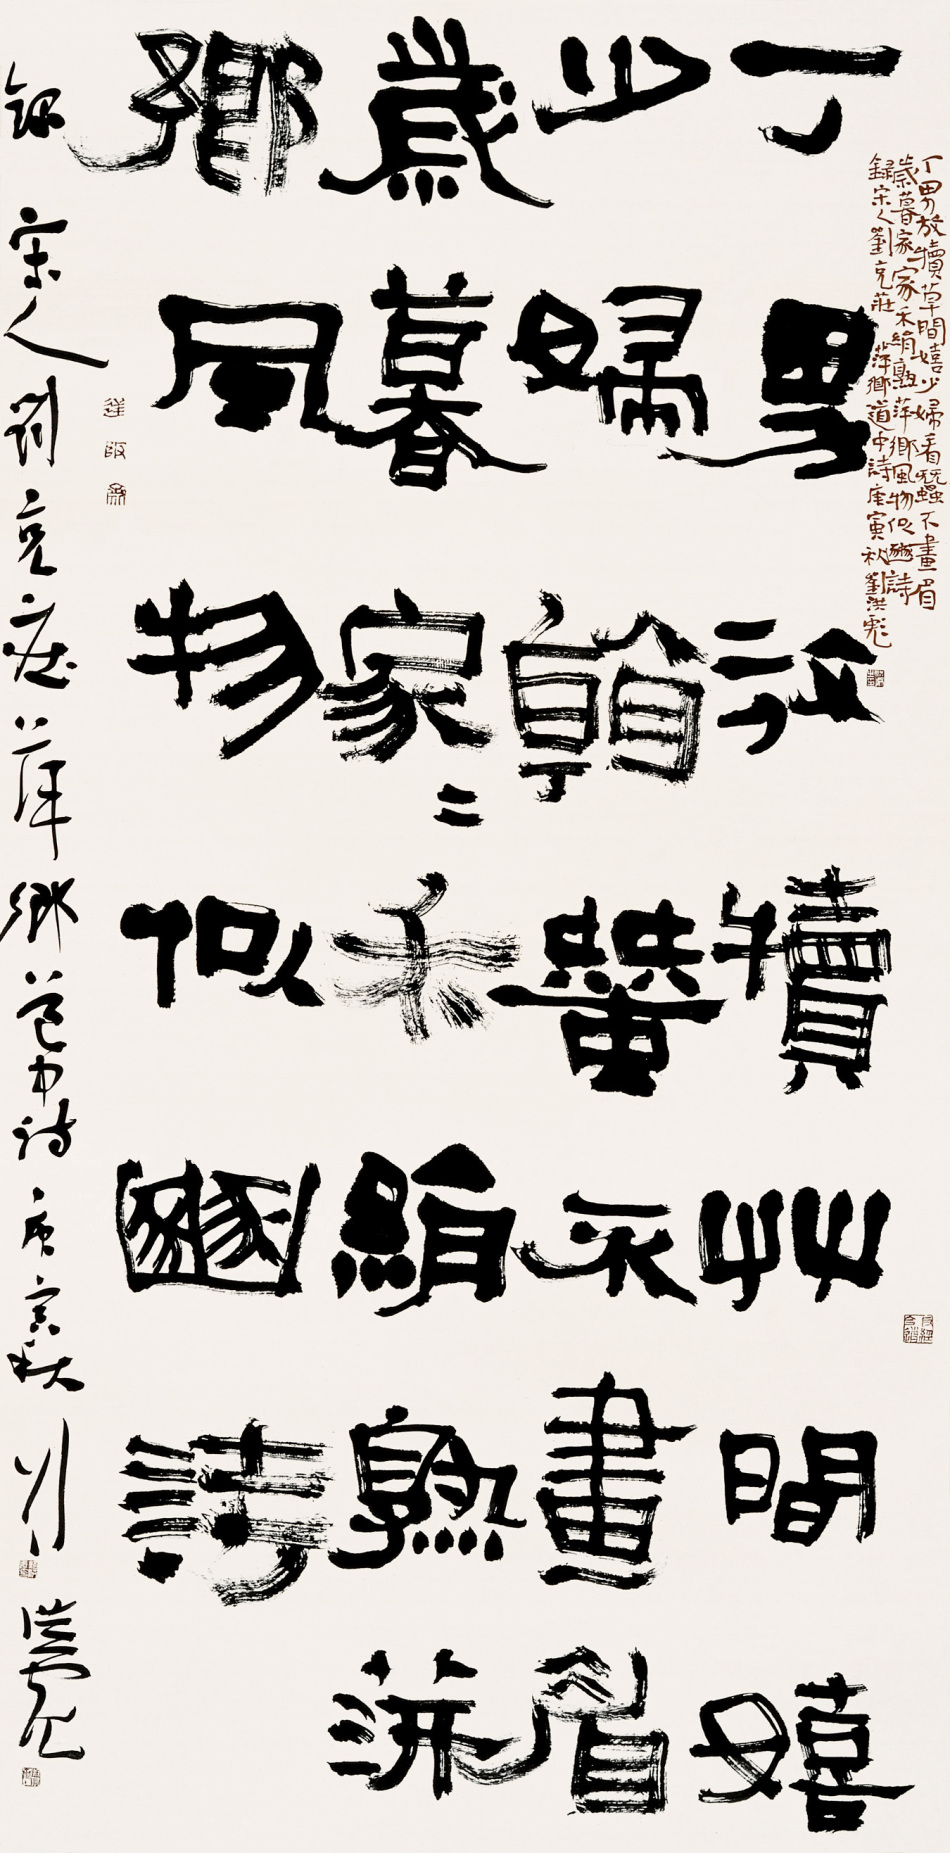 丁男放犢草間嬉少婦看蠶不畫眉
歲暮家家禾絹熟萍鄉風物似豳詩
錄宋人劉克莊 萍鄉道中詩庚寅秋劉洪彪
丁男放犢艸間嬉
少婦看蠶不畫眉
歲暮家〻禾絹熟萍
鄉風物似豳詩
錄宋人刘克莊萍鄉道中詩庚寅秋刘洪彪